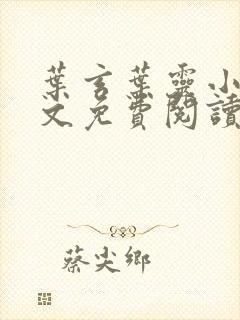 葉言葉靈小
文免費閱讀
蔡尖鄉